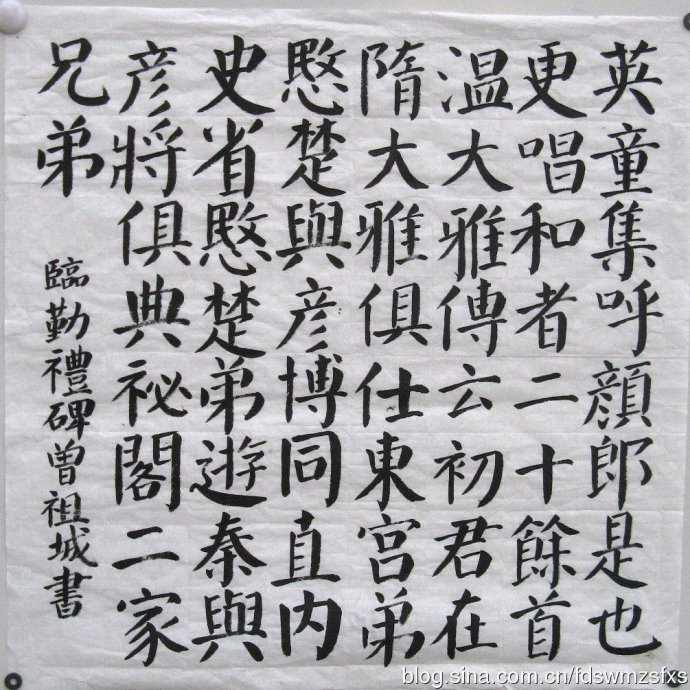 英童集呼顔郎是也
更唱和者二十餘首
温大雅傳云初君在
隋大雅俱仕東宮弟
愍楚與彦博同直内
史省愍楚弟遊秦與
彦將俱典祕閣二家
兄弟
臨勤禮碑曾祖城書
blog.sina.com.cn/fdswmzsfxs